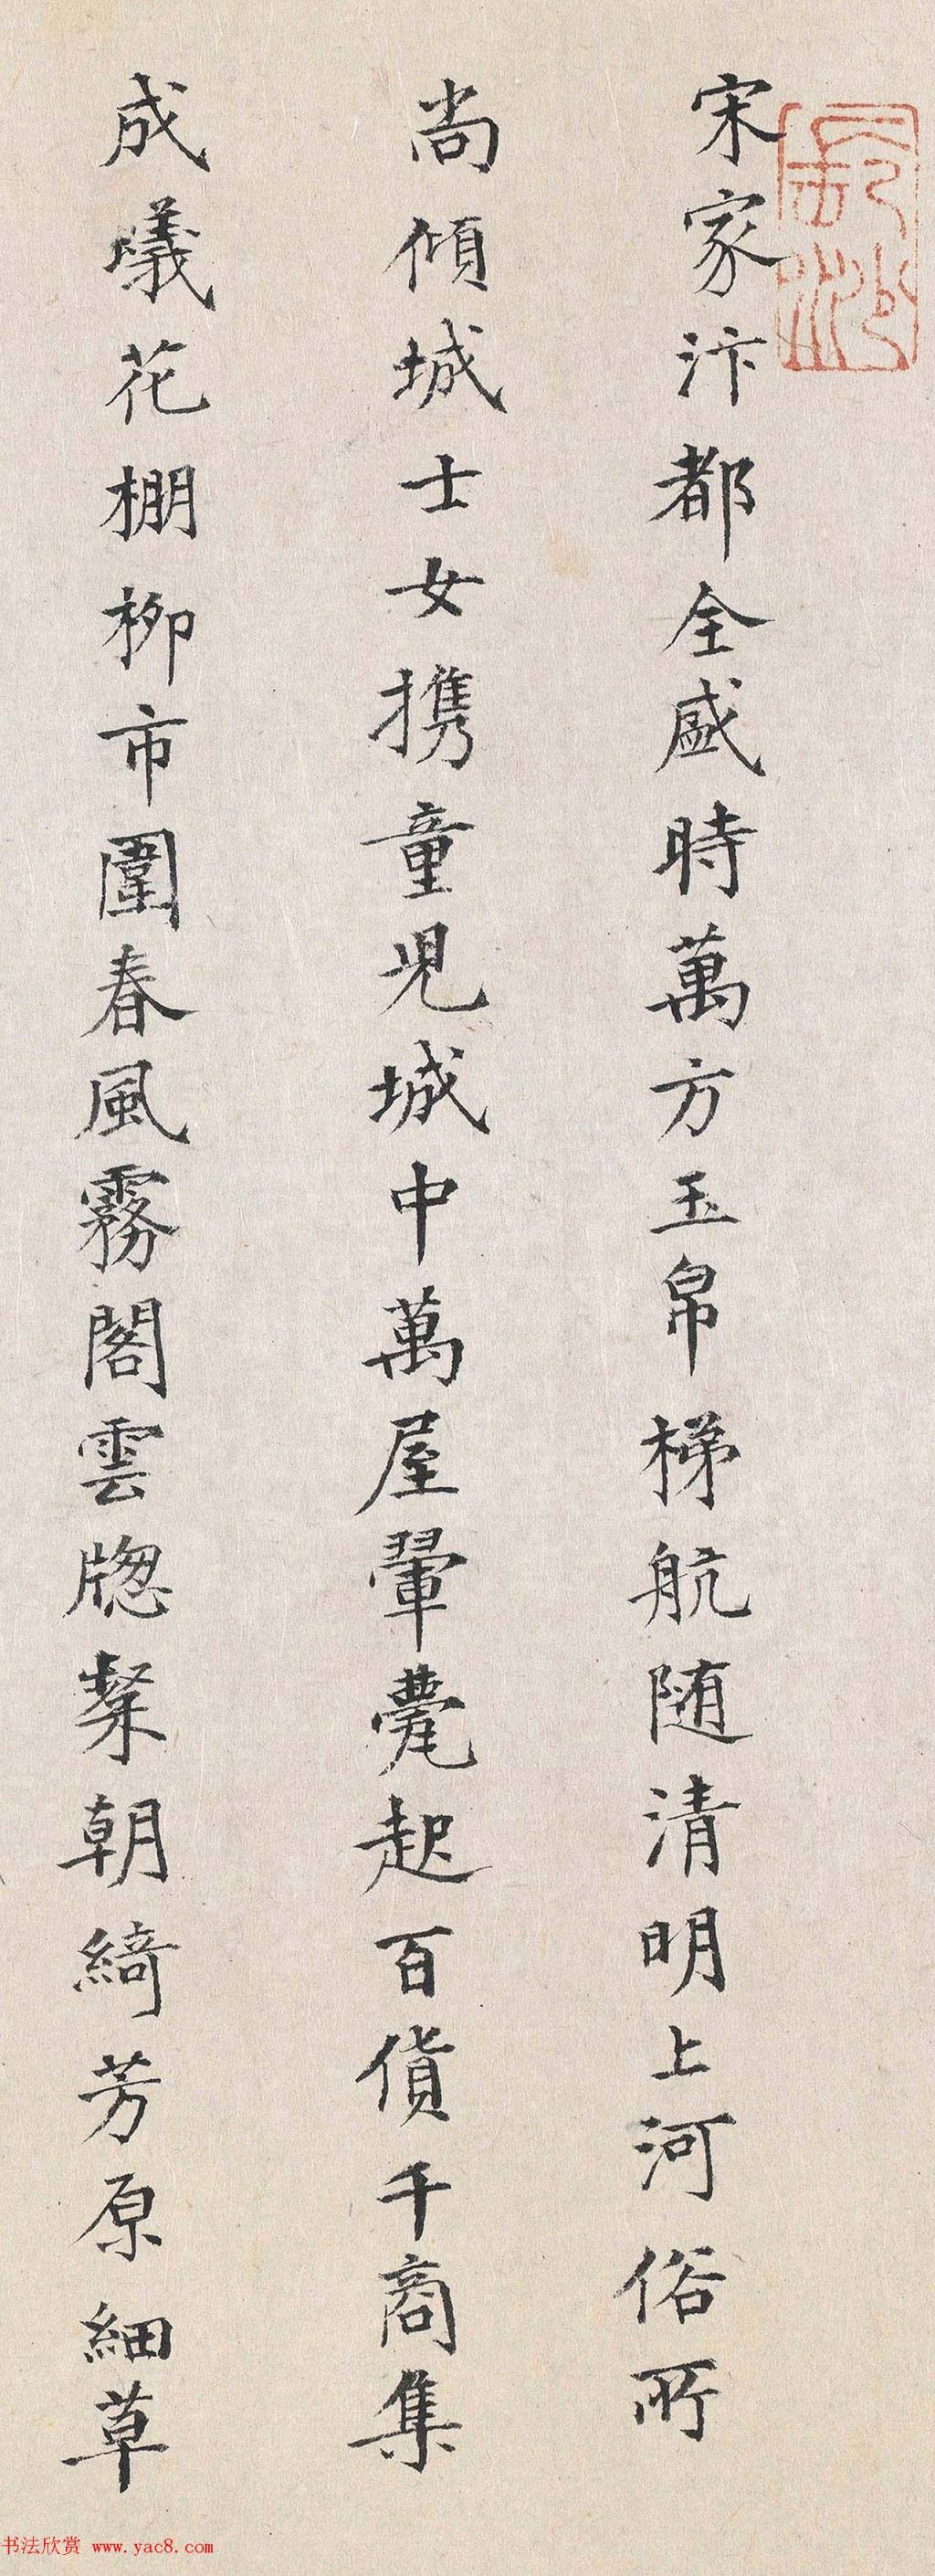 宋家汴都全盛時萬方玉帛梯航随清明上河俗所
尚傾城士女携童児城中萬屋翬甍起百貨千商集
成蟻花棚柳市圍春風霧閣雲牎粲朝綺芳原細草
书法欣赏 www.yac8.com